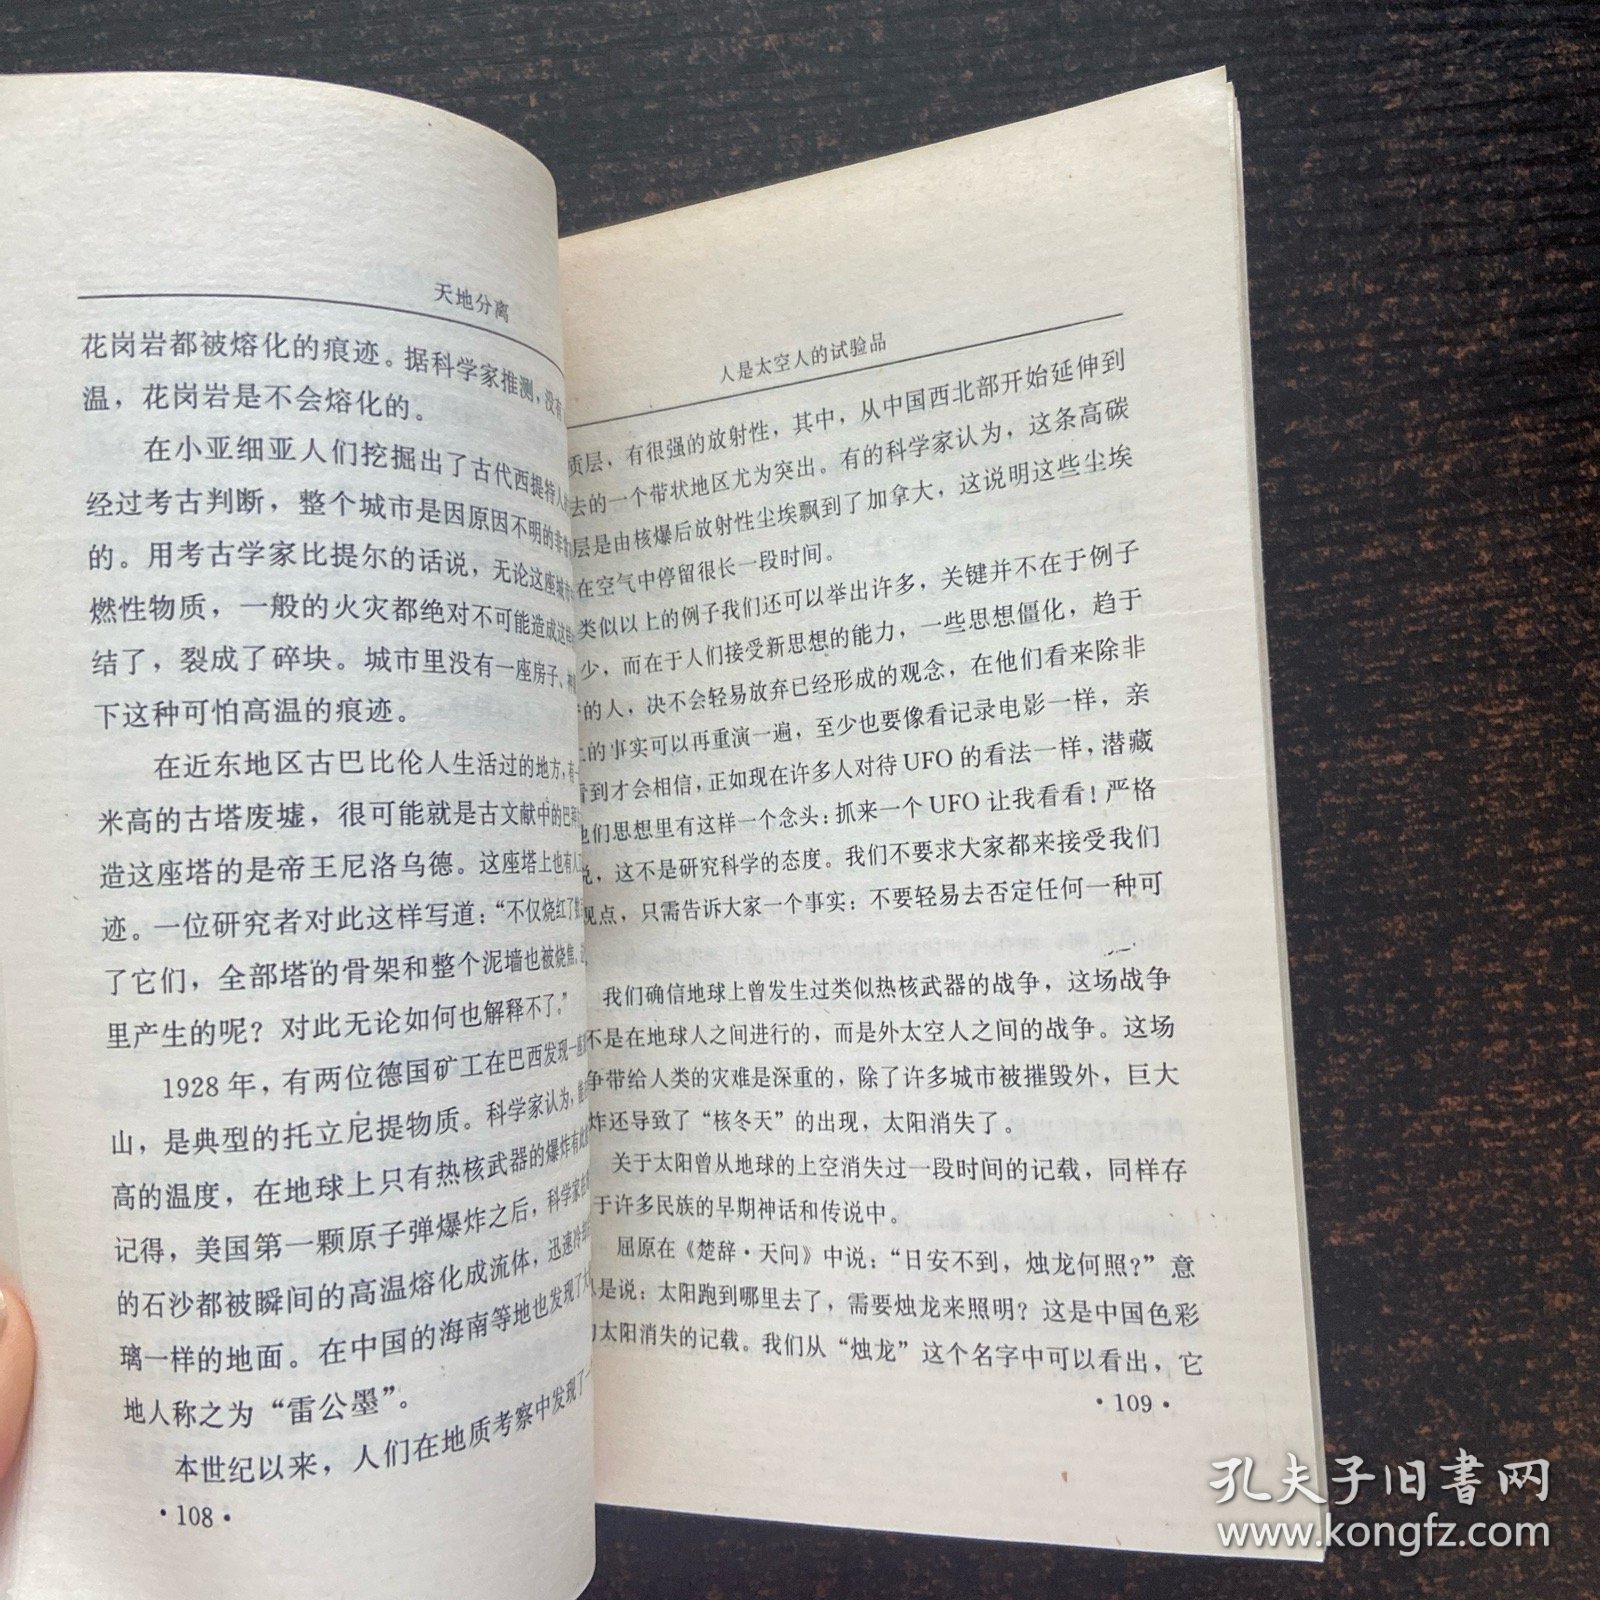 天地分离
花岗岩都被熔化的痕迹。据科学家推测，没有
温，花岗岩是不会熔化的。
在小亚细亚人们挖掘出了古代西提特人
经过考古判断，整个城市是因原因不明的非
的。用考古学家比提尔的话说，无论这座城市
燃性物质，一般的火灾都绝对不可能造成这
结了，裂成了碎块。城市里没有一座房子、神
下这种可怕高温的痕迹。
在近东地区古巴比伦人生活过的地方，有一
米高的古塔废墟，很可能就是古文献中的巴
造这座塔的是帝王尼洛乌德。这座塔上也有
迹。一位研究者对此这样写道：“不仅烧红了
了它们，全部塔的骨架和整个泥墙也被烧焦，
里产生的呢？对此无论如何也解释不了。”
1928年，有两位德国矿工在巴西发现一
山，是典型的托立尼提物质。科学家认为，
高的温度，在地球上只有热核武器的爆炸有此
记得，美国第一颗原子弹爆炸之后，科学家在
的石沙都被瞬间的高温熔化成流体，迅速冷
璃一样的地面。在中国的海南等地也发现了
地人称之为“雷公墨”。
本世纪以来，人们在地质考察中发现了一
·108·
人是太空人的试验品
质层，有很强的放射性，其中，从中国西北部开始延伸到
去的一个带状地区尤为突出。有的科学家认为，这条高碳
层是由核爆后放射性尘埃飘到了加拿大，这说明这些尘埃
在空气中停留很长一段时间。
类似以上的例子我们还可以举出许多，关键并不在于例子
少，而在于人们接受新思想的能力，一些思想僵化，趋于
的人，决不会轻易放弃已经形成的观念，在他们看来除非
的事实可以再重演一遍，至少也要像看记录电影一样，亲
看到才会相信，正如现在许多人对待UFO的看法一样，潜藏
他们思想里有这样一个念头：抓来一个UFO让我看看！严格
说，这不是研究科学的态度。我们不要求大家都来接受我们
观点，只需告诉大家一个事实：不要轻易去否定任何一种可
我们确信地球上曾发生过类似热核武器的战争，这场战争
不是在地球人之间进行的，而是外太空人之间的战争。这场
争带给人类的灾难是深重的，除了许多城市被摧毁外，巨大
炸还导致了“核冬天”的出现，太阳消失了。
关于太阳曾从地球的上空消失过一段时间的记载，同样存
于许多民族的早期神话和传说中。
屈原在《楚辞·天问》中说：“日安不到，烛龙何照？”意
是说：太阳跑到哪里去了，需要烛龙来照明？这是中国色彩
太阳消失的记载。我们从“烛龙”这个名字中可以看出，它
·109·
孔夫子旧书网
www.kongfz.com